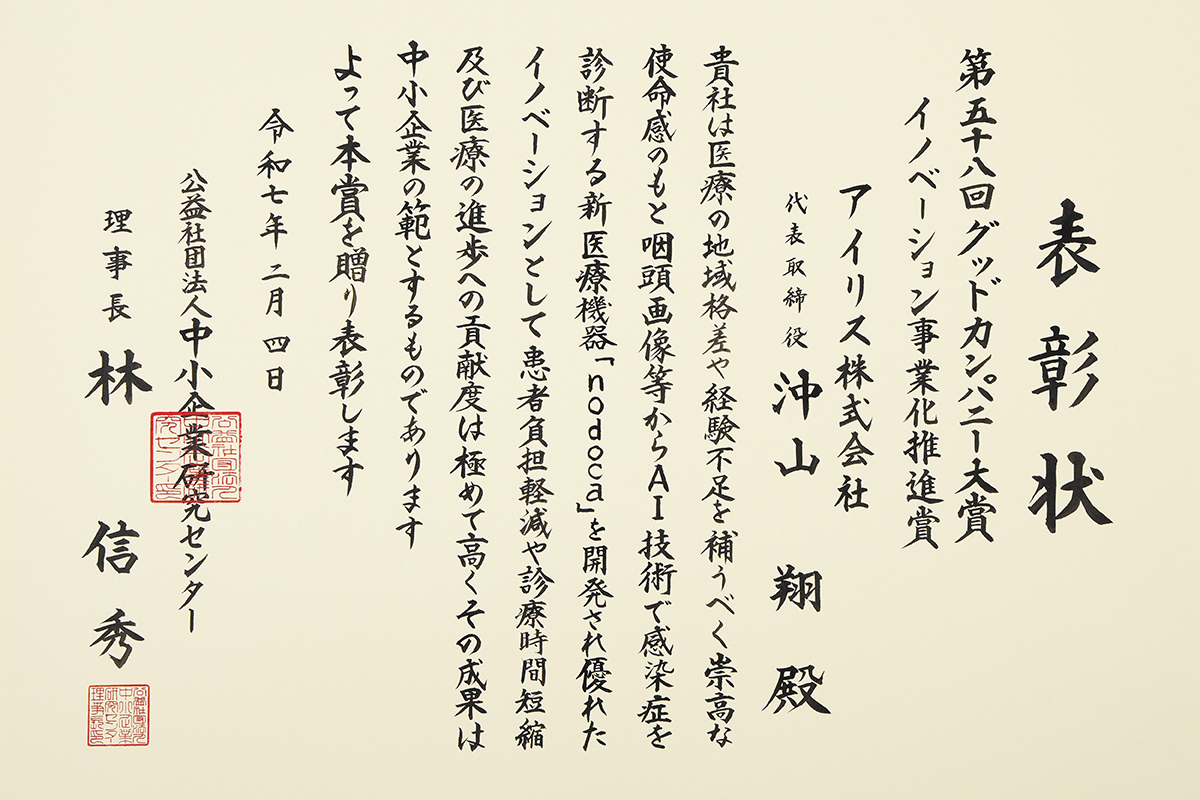 表彰状
第五十八回グッドカンパニー大賞
イノベーション事業化推進賞
アイリス株式会社
代表取締役 沖山 翔 殿
貴社は医療の地域格差や経験不足を補うべく崇高な
使命感のもと咽頭画像等からAI技術で感染症を
診断する新医療機器「nodoca」を開発され優れた
イノベーションとして患者負担軽減や診療時間短縮
及び医療の進歩への貢献度は極めて高くその成果は
中小企業の範とするものであります
よって本賞を贈り表彰します
令和七年二月四日
公益社団法人中小企業研究センター
理事長 林 信秀